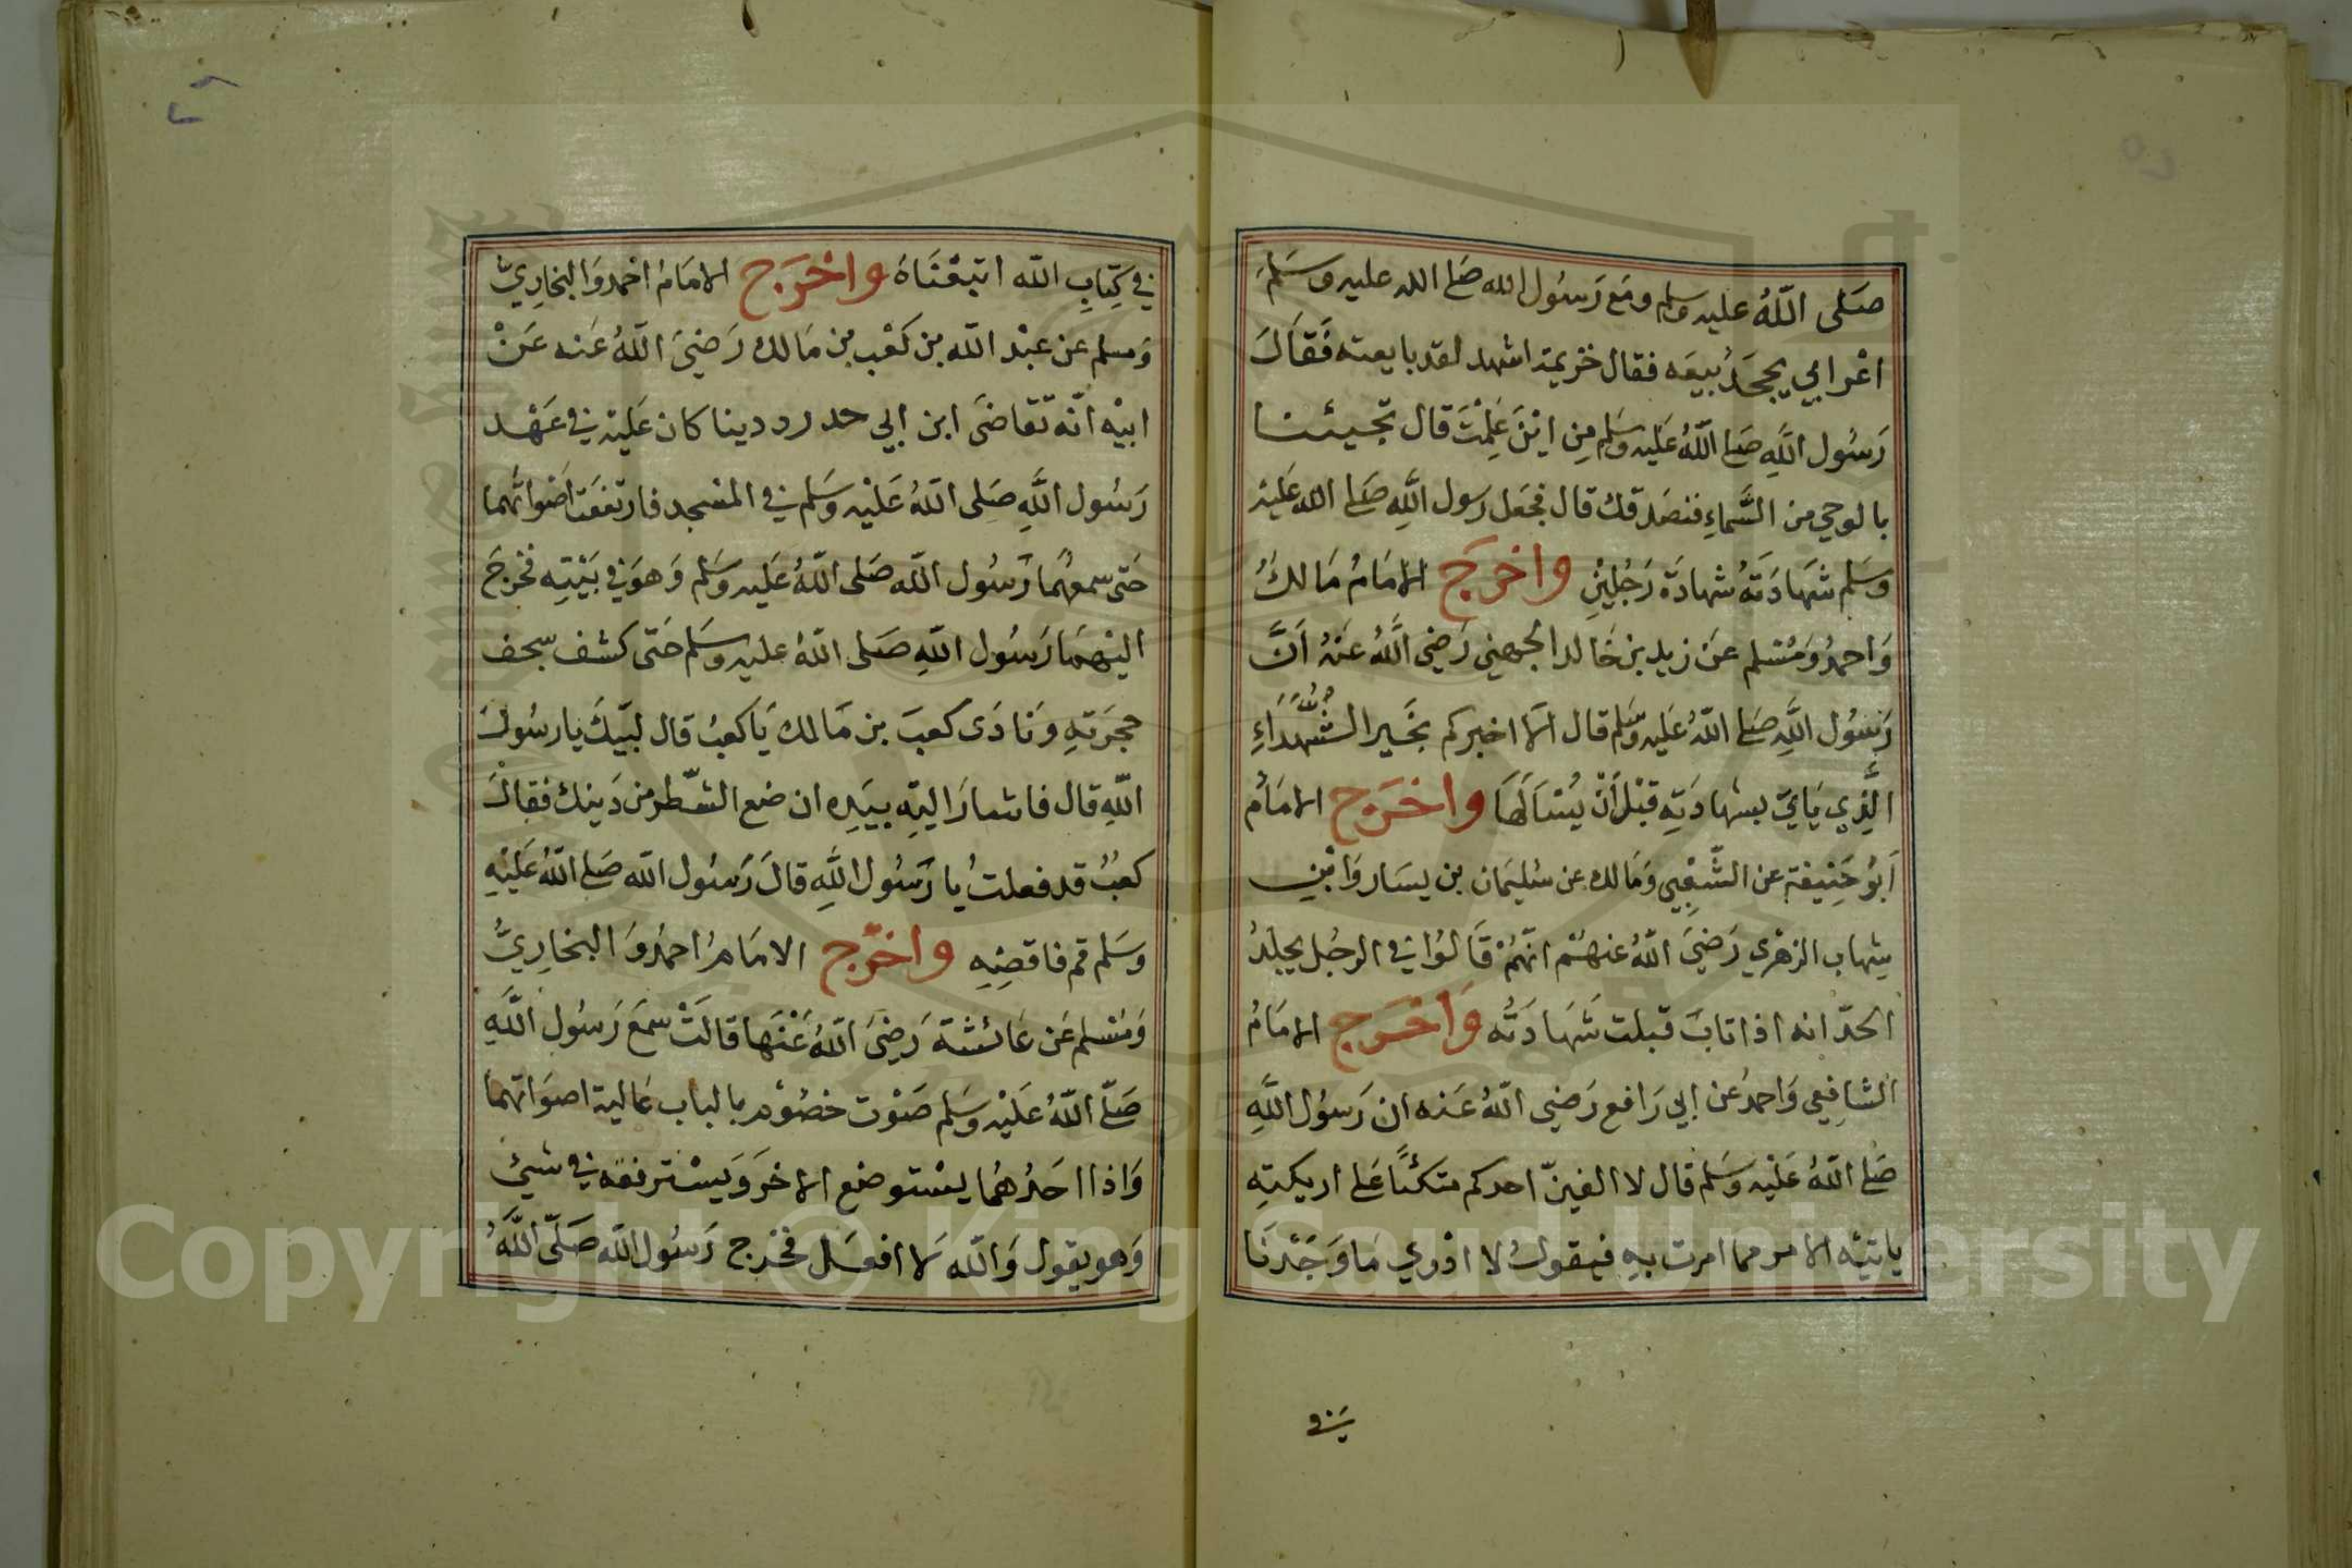 صَلى اللّهُ عليه وسلم ومَع رَسُول الله صَلى الله عليه وسَلمَ
اعْرابي يجحَدُ بيعَه فقال خزيمة اشهد لقد بايعته فَقَالَ
رَسُول اللَّهِ صَلى اللّهُ عَليه وسَلم مِن ايْنَ عَلِمْتَ قال تجيئنا
بالوحي من السَّماءِ فنصَدقك قال فجَعَل رسول اللَّهِ صَلى الله عَليْه
وسَلم شهَادَتَهُ شهادَة رَجُلَيْنِ واخرَجَ الامَامُ مَالكُ
وَاحمدُ وَمُسْلم عَن زيد بن خَالد الجهني رَضي اللَّهُ عَنْهُ اَنَّ
رَسُول اللَّهِ صَلى اللّهُ عَليه وسَلم قال الا اخبركم بخَير الشُّهَدَاءِ
الَّذي يَاتي بشهادَتِهِ قَبْلَ اَنْ يُسْاَلهَا واخرَج الامَامُ
اَبُو حَنيفة عن الشَّعْبِي وَمَالك عن سُليمَان بن يسَار وَابْنِ
شِهاب الزهْري رَضيَ اللّهُ عنهُمْ انّهُمْ قَالوُا في الرجُل يجلَدُ
الحدّ انه اذا تابَ قبلت شَهَادَتُه وَاخرَج الامَامُ
الشافِعي وَاحمدُ عن ابي رَافع رَضي اللّهُ عَنه ان رَسوُل اللَّهِ
صَلى اللّهُ عَليْه وسَلم قال لا الفينّ احدكم متكئًا عَلى اريكتِهِ
ياتيْه الامر مما امرت بهِ فيقولُ لا ادْري مَا وَجَدْنَا
في
في كِتابِ اللّه اتبَعْنَاهُ واخْرَج الامَامُ احْمد وَالبخَارِيّ
وَمسلم عن عبْد اللّه بن كَعْب بن مَالك رَضيَ اللّهُ عَنه عَنْ
ابيْه انّه تقاضَى ابن ابي حدرد دينا كان عَليْه في عَهْد
رَسُول اللَّهِ صَلى اللّهُ عَليْه وسَلم في المسْجد فارتفعَت اصْواتُهما
حَتى سمعهُمَا رَسُول اللّه صَلى اللّهُ عَليه وسَلم وَهوَ في بَيْتِه فخرجَ
اليْهمَا رَسُول اللَّهِ صَلى اللّهُ عليه وسَلم حَتى كشف سجف
حجرَتهِ وَنادَى كعبَ بن مَالك يَا كعبُ قال لبّيكَ يا رسُولَ
اللّهِ قال فاشارَ اليْهِ بيَدِه ان ضع الشّطر من دَينك فقالَ
كعبُ قد فعلتُ يا رَسُول اللَّهِ قالَ رَسُول اللّه صَلى اللّهُ عَليْهِ
وسَلم قم فاقضِهِ واخرّج الامَامُ احمدُ وَالبخارِيُّ
وَمُسْلم عَن عَائشة رَضيَ اللّهُ عَنْهَا قالتْ سمعَ رَسُول اللَّهِ
صَلّى اللّهُ عَليْه وسَلم صَوْت خصُوْم بالباب عَالية اصوَاتهما
وَاذا احَدُهُما يسْتوضع الاخرَ وَيسْترفقه في شيئ
وَهو يقول وَاللّه لا افعَل فخرج رَسُول اللّه صَلّى اللَّهُ
Copyright © King Saud University